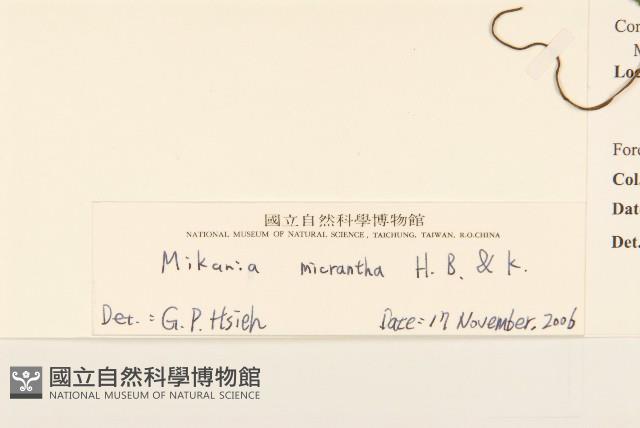 國立自然科學博物館
NATIONAL MUSEUM OF NATURAL SCIENCE, TAICHUNG, TAIWAN, R.O.CHINA
Mikania micrantha H. B. & K.
Det. : G. P. Hsieh Date: 17 November. 2006
Col.
Det.
國立自然科學博物館
NATIONAL MUSEUM OF NATURAL SCIENCE